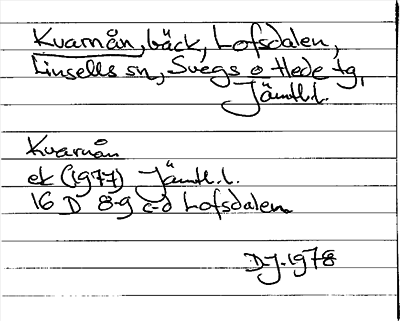 Kvarnån, bäck, Lofsdalen,
Linsells sn, Svegs o Hede tg,
Jämtl.l.
Kvarnån
ek (1977) Jämtl.l.
16 D 8-9 c-d Lofsdalen
D-J. 1978